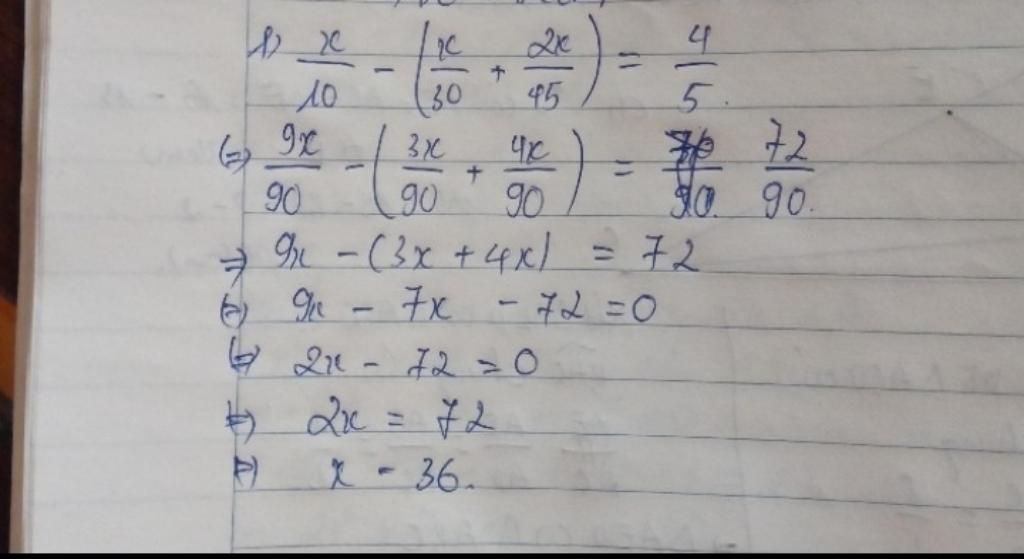 1) x/10 - (x/30 + 2x/45) = 4/5.
(=) 9x/90 - (3x/90 + 4x/90) = 72/90.
=) 9x - (3x + 4x) = 72
(=) 9x - 7x - 72 = 0
(=) 2x - 72 = 0
(=) 2x = 72
(=) x - 36.